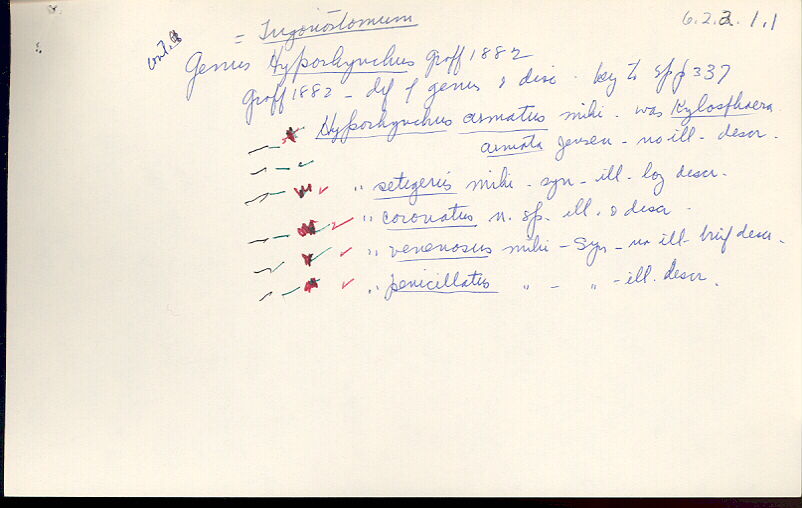 = Trigonostomum 6.2.2.1.1
cont'd
Genus Hyporhynchus Graff 1882
Graff 1882 - def of genus & disc. key to spp 337
Hyporhynchus armatus mihi. was Kylosphaera
armata Jensen - no ill - descr.
" setigerus mihi - syn - ill - long descr.
" coronatus n. sp. ill. & descr.
" venenosus mihi - Syn - no ill - brief descr.
" penicillatus " - " - ill. descr.